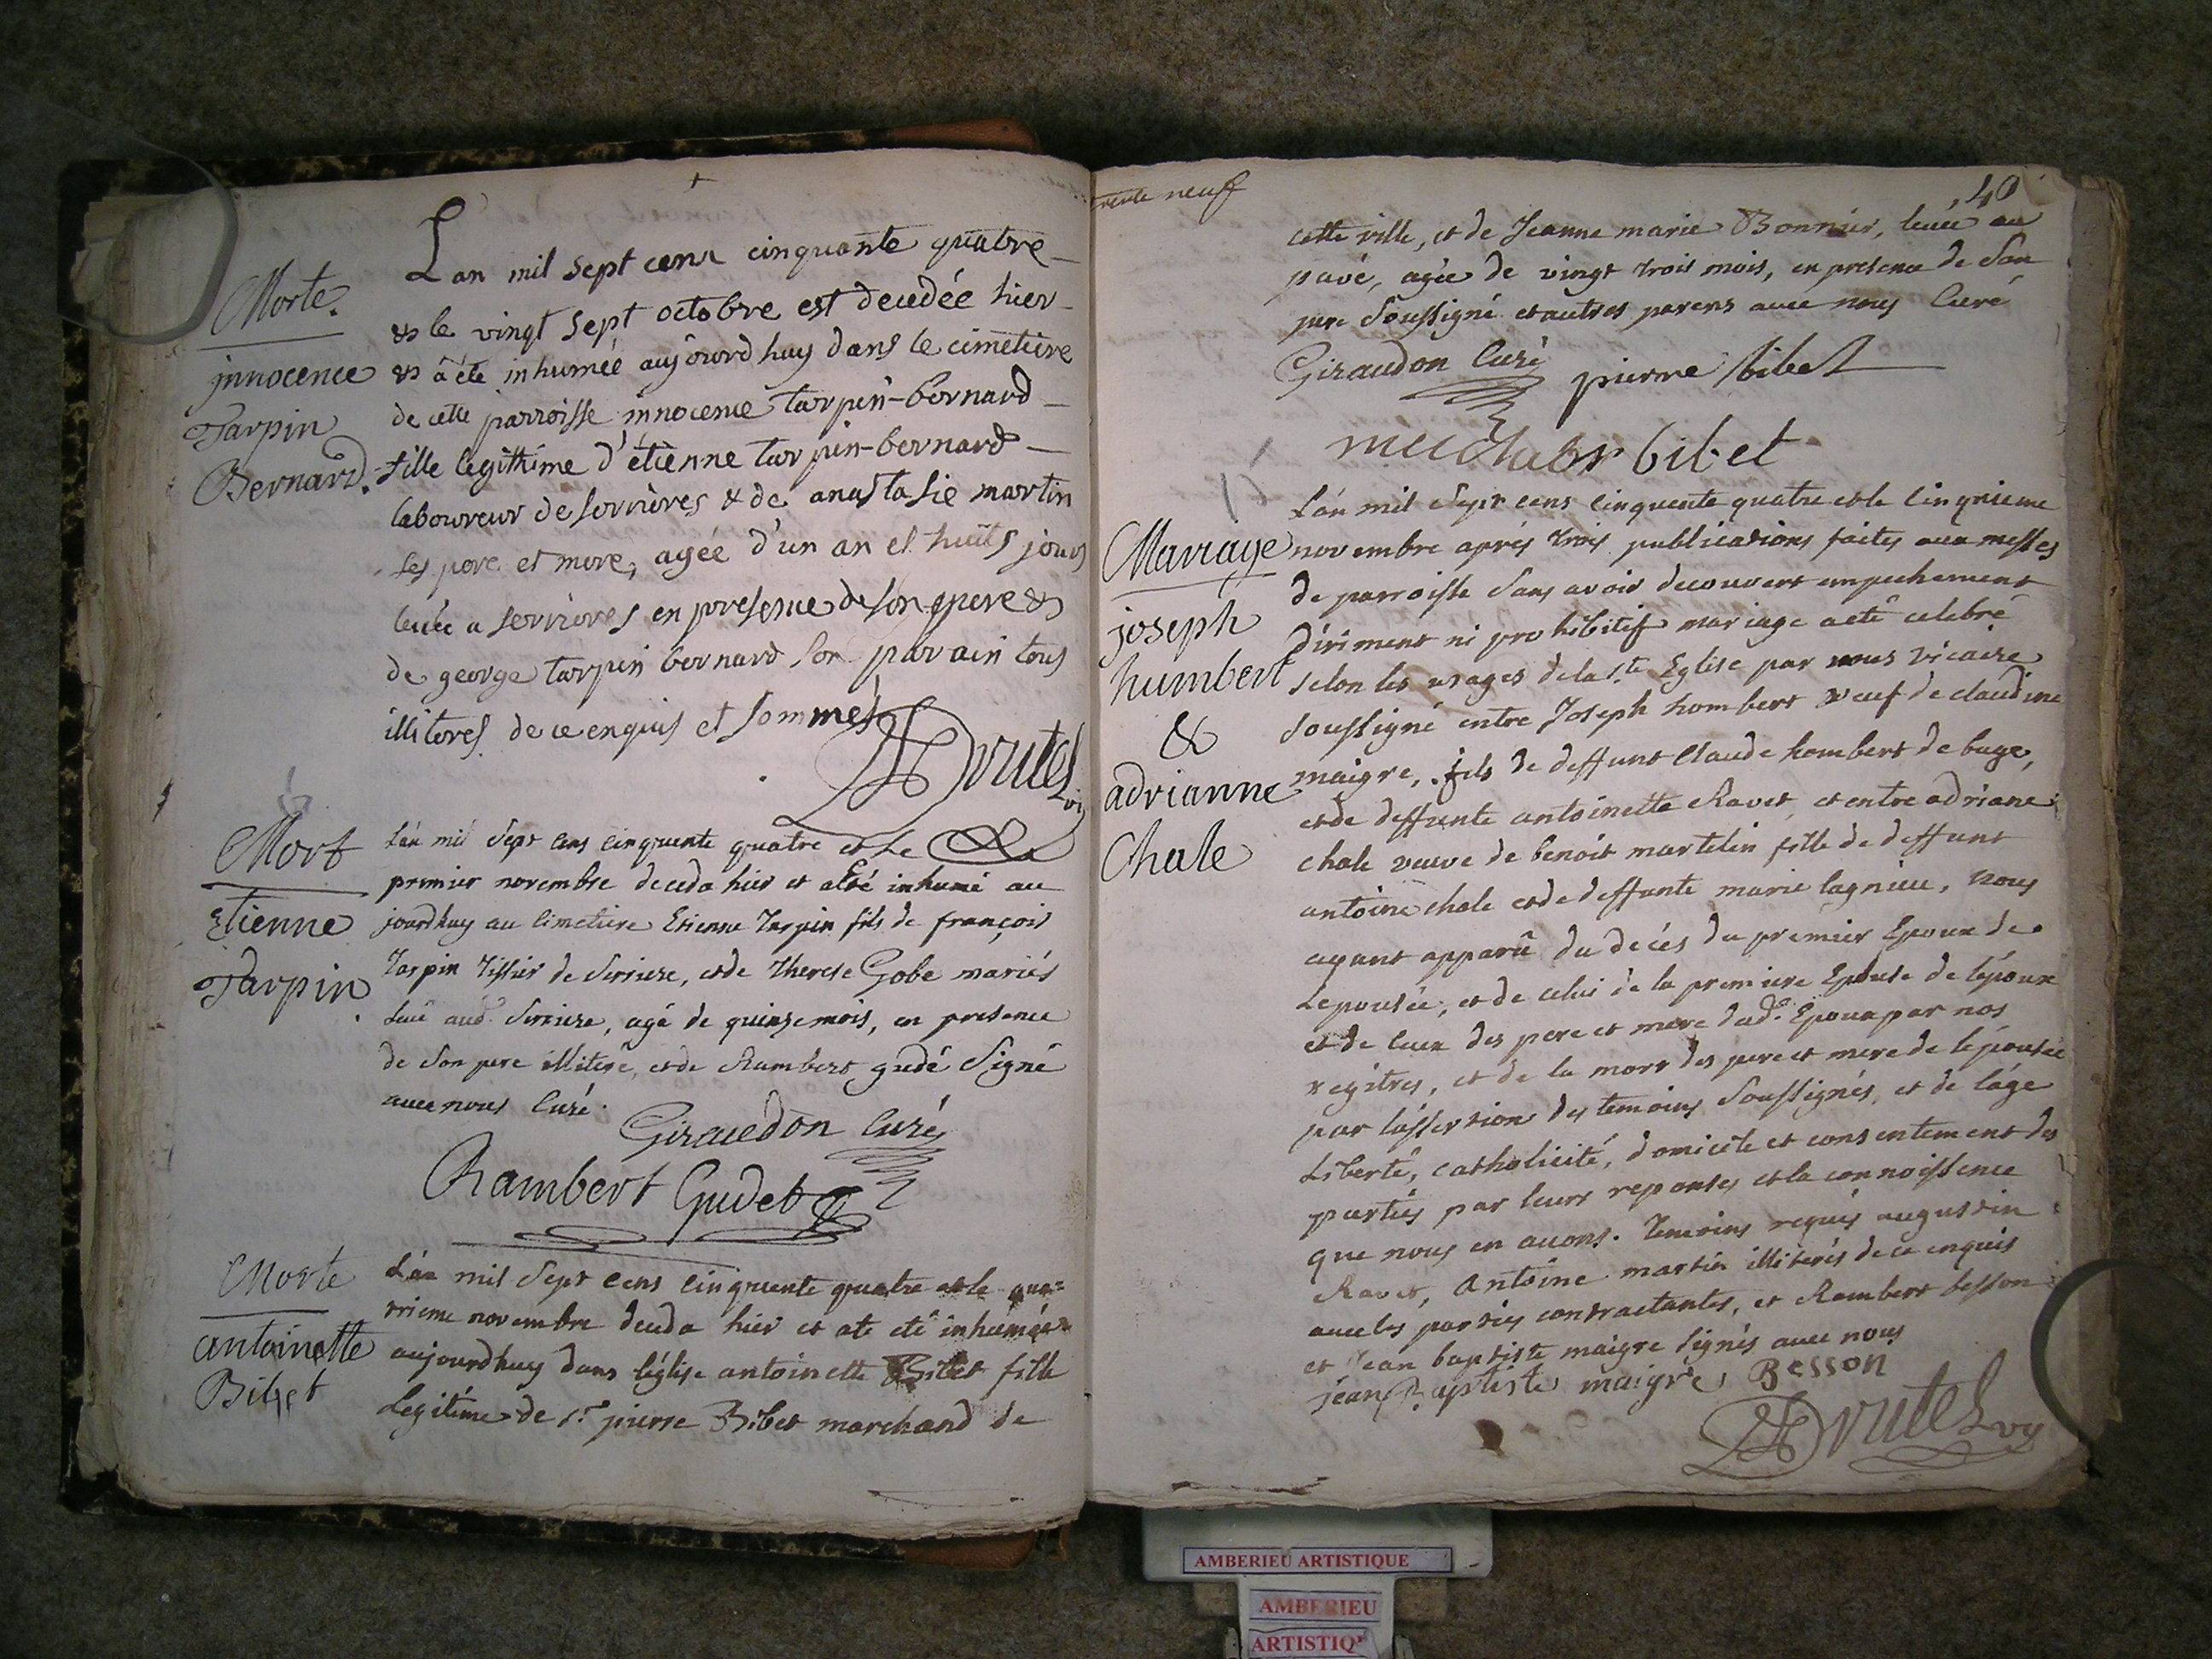 Morte
innocence
Tarpin
Bernard.
Lan mil sept cens cinquante quatre
& le vingt sept octobre est decedée hier
& a été inhumée aujourd huy dans le cimetiere
de cette parroisse innocence tarpin-bernard
fille legithime d'étienne tarpin-bernard
laboureur de serrieres & de anastasie martin
ses pere et mere, agée d'un an et huits jours
levée a serrieres en presence de son pere &
de george tarpin bernard son parain tous
illiteres de ce enquis et sommés
Drutel vi
Mort
Etienne
Tarpin
L'an mil sept cens cinquante quatre et le
premier novembre deceda hier et a été inhumé au
jourdhuy au cimetiere Etienne Tarpin fils de françois
Tarpin Tissier de Serriere, et de Therese Gobe mariés
levé aud. Serriere, agé de quinze mois, en presence
de son pere illiteré, et de Rambert gudé signé
avec nous curé.
Giraudon curé
Rambert Gudet
Morte
antoinette
Bibet
L'an mil sept cens cinquante quatre et le qua=
trieme novembre deceda hier et a été inhumée
aujourdhuy dans l'église antoinette Bibet fille
Legitime de sr. pierre Bibet marchand de
trente neuf
40
cette ville, et de Jeanne marie Bonnier, levée au
pavé, agée de vingt trois mois, en presence de son
pere soussigné et autres parens avec nous curé
Giraudon curé pierre bibet
bibet
Mariage
joseph
humbert
&
adrianne
Chale
L'an mil sept cens cinquante quatre et le cinquieme
novembre aprés trois publications faites aux messes
de parroisse sans avoir decouvert empechement
diriment ni prohibitif mariage a eté celebré
selon les usages de la ste. Eglise par nous vicaire
soussigné entre Joseph hombert veuf de claudine
maigre, fils de deffunt Claude hombert de buge,
et de deffunte antoinette Ravet, et entre adriane
chale veuve de benoit martelin fille de deffunt
antoine chale et de deffunte marie lagnieu, nous
ayant apparû du decés du premier Epoux de
L'epousée, et de celui de la premiere Epouse de l'époux
et de ceux des pere et mere dud. Epoux par nos
regitres, et de la mort des pere et mere de l'épousée
par l'assertion des temoins soussignés, et de l'age
Liberté, catholicité, domicile et consentement des
parties par leurs reponses et la connoissence
que nous en avons. temoins requis augustin
Ravet, Antoine martin illiterés de ce enquis
avec les parties contractantes, et Rambert besson
et jean baptiste maigre signés avec nous
jean Baptiste maigre Besson
Drutel vy
AMBERIEU ARTISTIQUE
AMBERIEU
ARTISTIQ